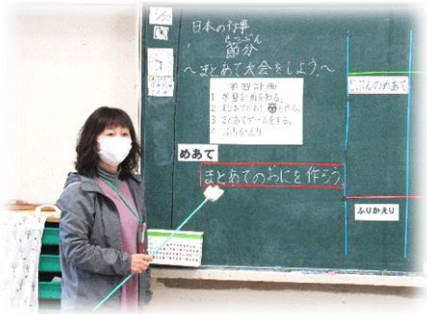 日本の行事
せつぶん
節分
～まとあて大会をしよう。～
学習計画
1 学習計画を知る。
2 まとあてのおにを作る。
3 まとあてゲームをする。
4 ふりかえり
めあて
まとあてのおにを作ろう。
じぶんのめあて
ふりかえり